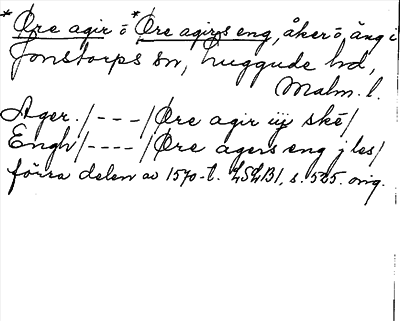 *Øre agir o *Øre agirs eng, åker o. äng i
Jonstorps sn, Luggude hd,
Malm. l.
Ager. /---/ Øre agir iij ske/
Engh /----/ Øre agers eng j les/
förra delen av 1570-t. LSLB1, s. 565. orig.